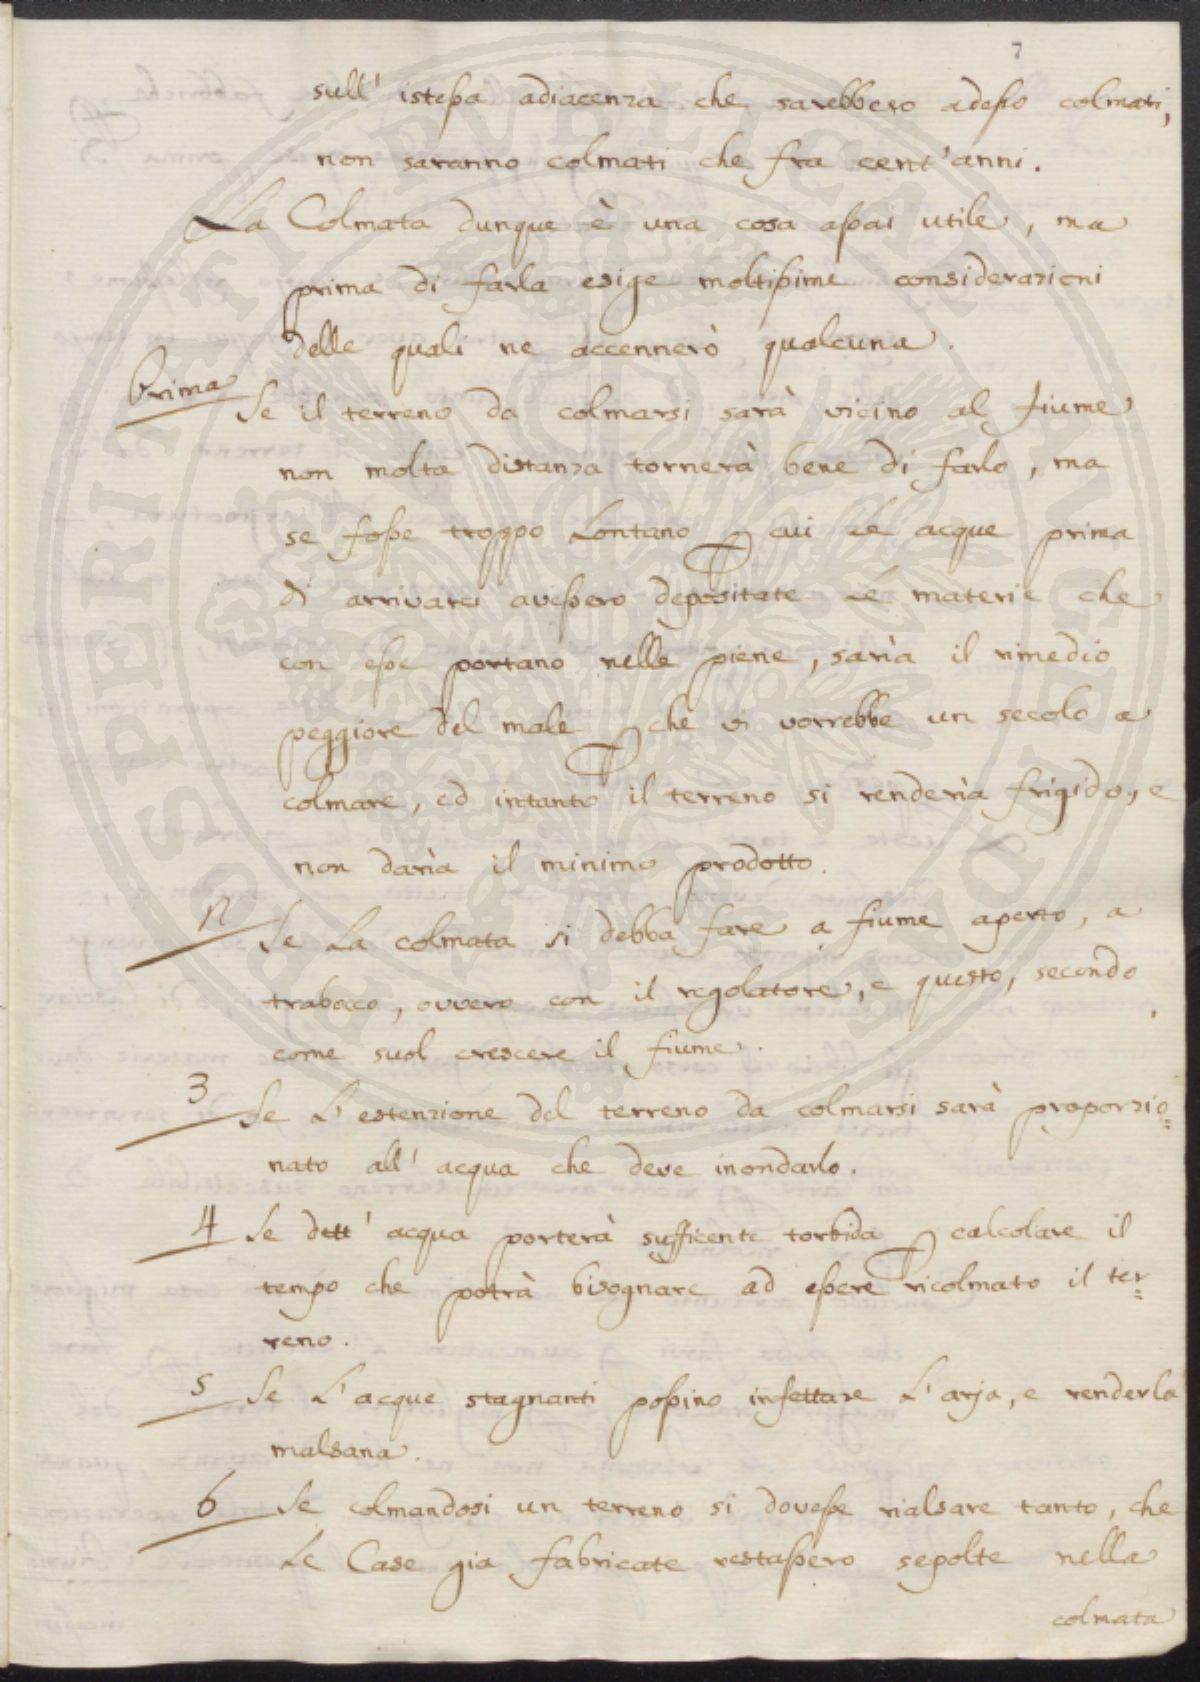 7
sull' istessa adiacenza che sarebbero adesso colmati,
non saranno colmati che fra cent'anni.
La Colmata dunque è una cosa assai utile, ma
prima di farla esige moltissime considerazioni
delle quali ne accennerò qualcuna.
Prima Se il terreno da colmarsi sarà vicino al fiume
non molta distanza tornerà bene di farlo, ma
se fosse troppo Lontano p cui Le acque prima
di arrivarci avessero depositate Le materie che
con esse portano nelle piene, sarìa il rimedio
peggiore del male p che vi vorrebbe un secolo a
colmare, ed intanto il terreno si renderìa frigido, e
non darìa il minimo prodotto.
2 Se La colmata si debba fare a fiume aperto, a
trabocco, ovvero con il regolatore, e questo, secondo
come suol crescere il fiume.
3 Se L'estenzione del terreno da colmarsi sarà proporzio=
nato all' acqua che deve inondarlo.
4 Se dett' acqua porterà sufficente torbida p calcolare il
tempo che potrà bisognare ad essere ricolmato il ter=
reno.
5 Se L'acque stagnanti possino infettare L'arja, e renderla
malsana.
6 Se colmandosi un terreno si dovesse rialsare tanto, che
Le Case gia fabricate restassero sepolte nella
colmata
POSPERITATI PUBLICAE AUGENDAE